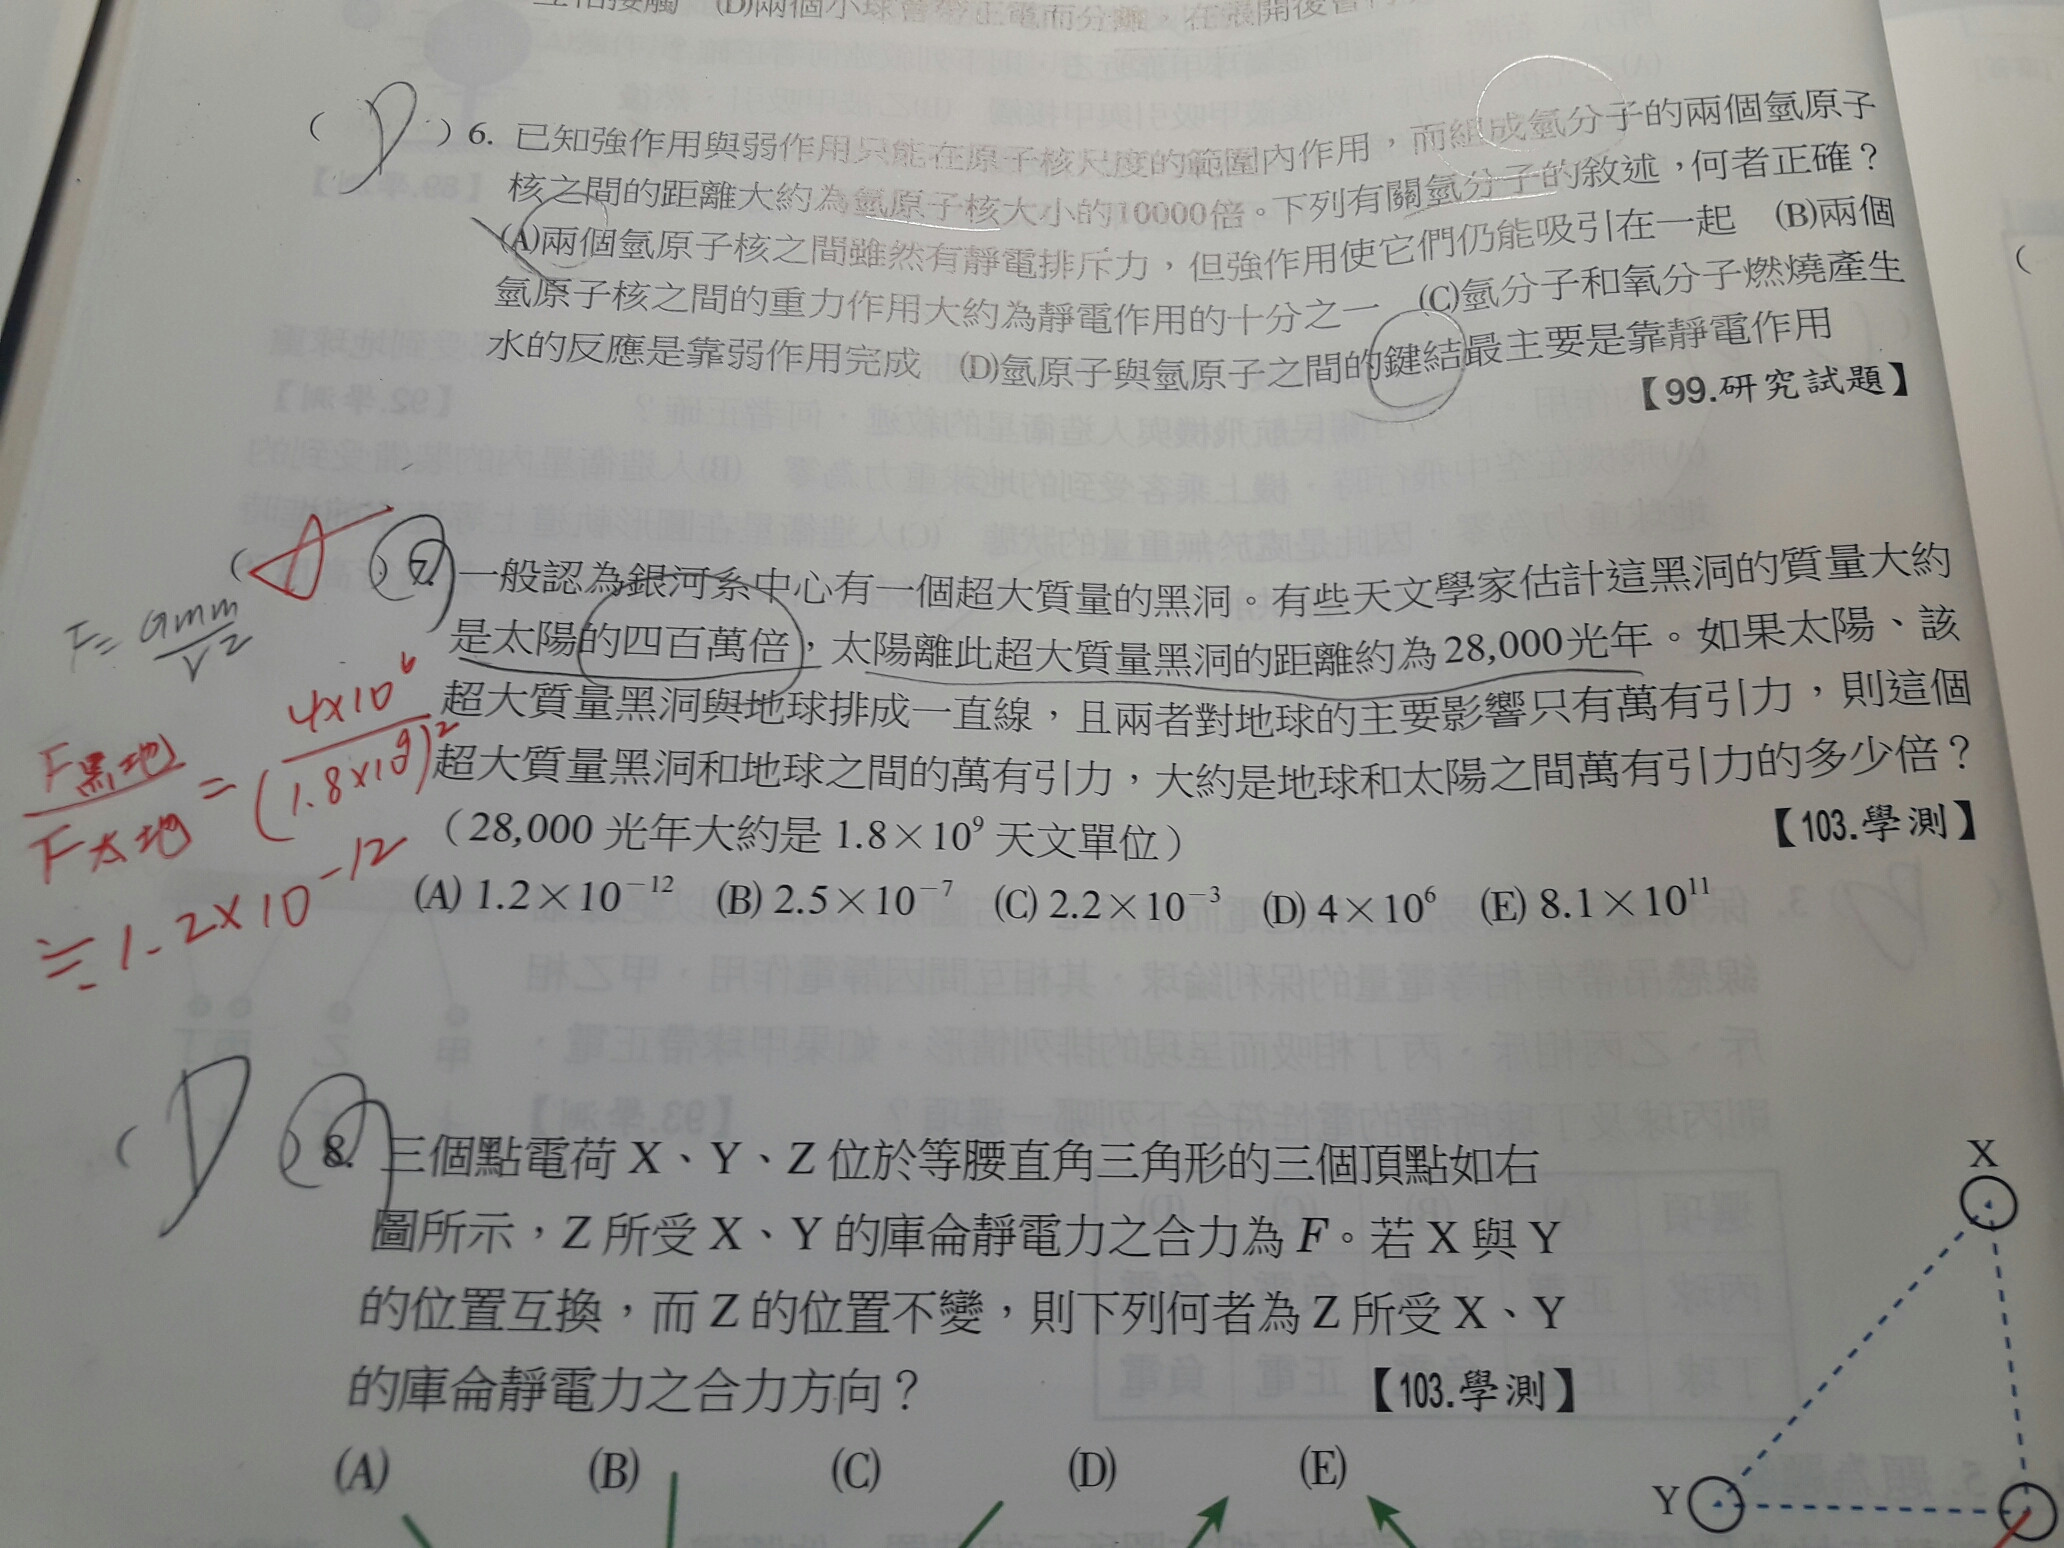 (D)兩個小球會帶正電而分離,在張開後會
( D ) 6. 已知強作用與弱作用只能在原子核尺度的範圍內作用,而組成氫分子的兩個氫原子
核之間的距離大約為氫原子核大小的10000倍。下列有關氫分子的敘述,何者正確?
(A)兩個氫原子核之間雖然有靜電排斥力,但強作用使它們仍能吸引在一起 (B)兩個
氫原子核之間的重力作用大約為靜電作用的十分之一 (C)氫分子和氧分子燃燒產生
水的反應是靠弱作用完成 (D)氫原子與氫原子之間的鍵結最主要是靠靜電作用
【99.研究試題】
( A ) 7. 一般認為銀河系中心有一個超大質量的黑洞。有些天文學家估計這黑洞的質量大約
是太陽的四百萬倍,太陽離此超大質量黑洞的距離約為28,000光年。如果太陽、該
超大質量黑洞與地球排成一直線,且兩者對地球的主要影響只有萬有引力,則這個
超大質量黑洞和地球之間的萬有引力,大約是地球和太陽之間萬有引力的多少倍?
(28,000 光年大約是 1.8×10⁹ 天文單位)
【103.學測】
(A) 1.2×10⁻¹² (B) 2.5×10⁻⁷ (C) 2.2×10⁻³ (D) 4×10⁶ (E) 8.1×10¹¹
F= Gmm/r²
F黑地/F太地 = 4×10⁶/(1.8×10⁹)²
≒1.2×10⁻¹²
( D ) 8. 三個點電荷 X、Y、Z 位於等腰直角三角形的三個頂點如右
圖所示,Z 所受 X、Y 的庫侖靜電力之合力為 F。若 X 與 Y
的位置互換,而 Z 的位置不變,則下列何者為 Z 所受 X、Y
的庫侖靜電力之合力方向?
【103.學測】
(A) (B) (C) (D) (E)
X
Y